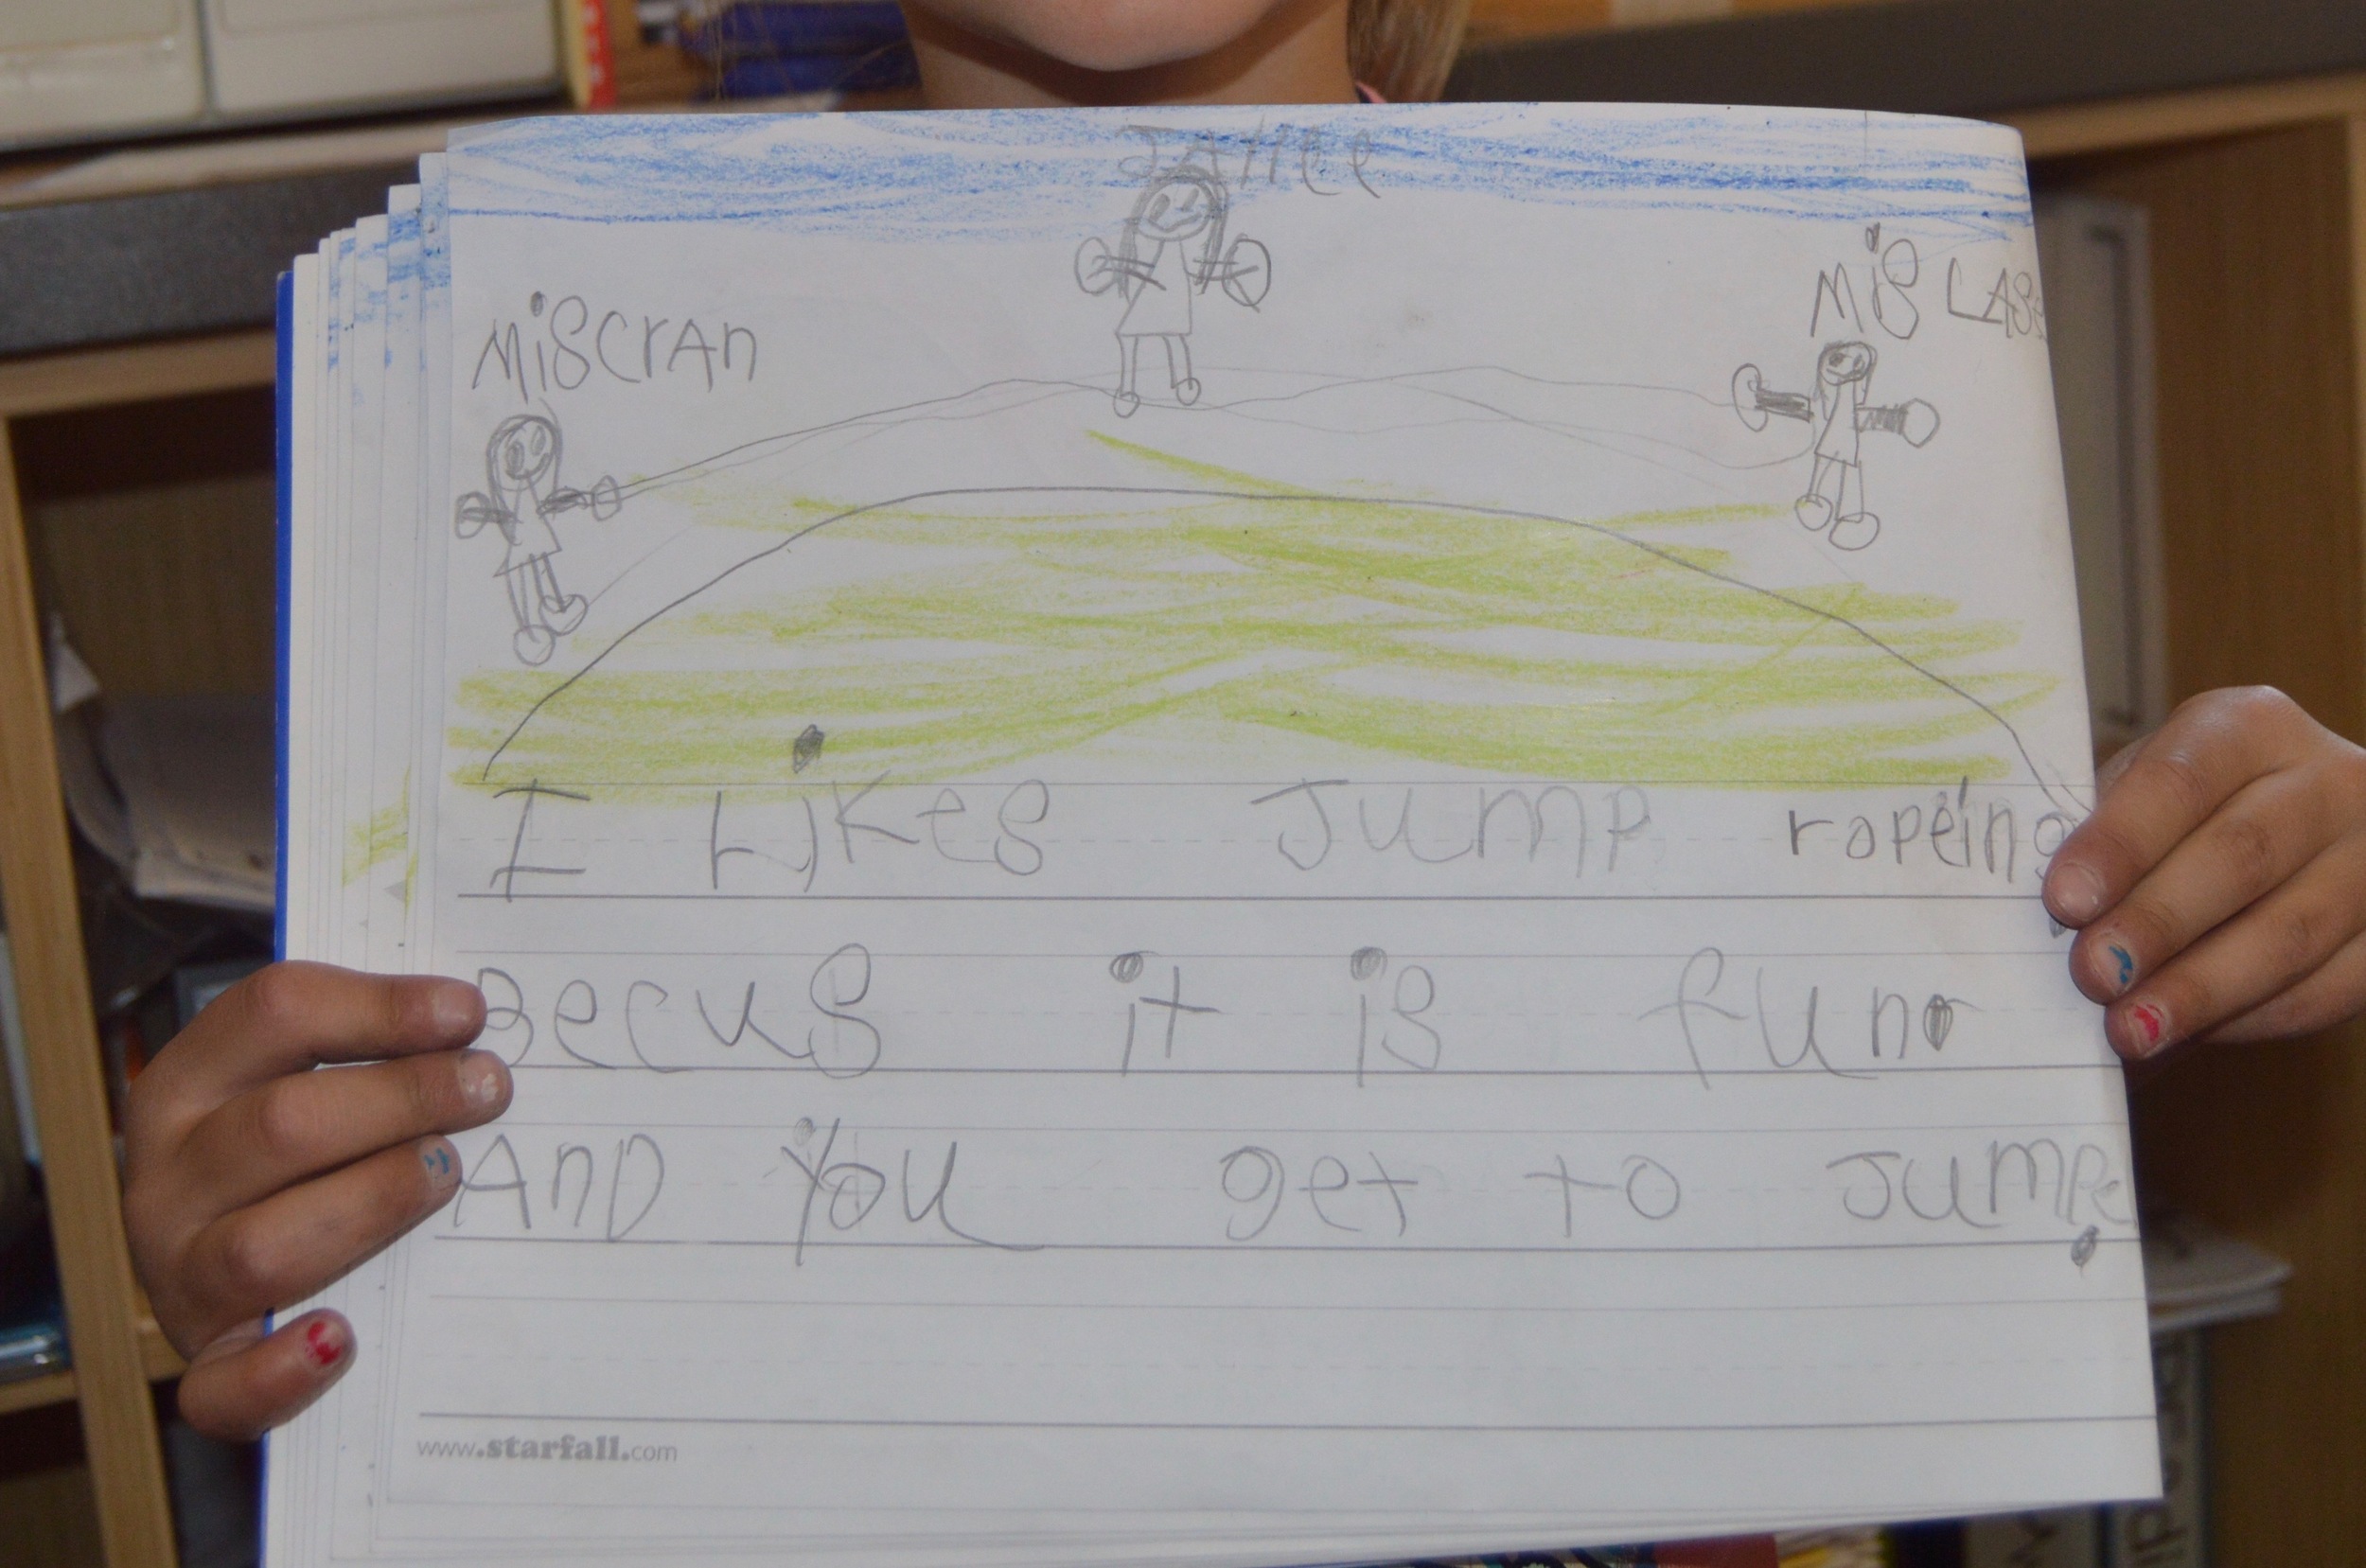 MiscrAn
Mis LAS
I Likes Jump ropeing
Becus it is fun.
AnD you get to Jump.
www.starfall.com